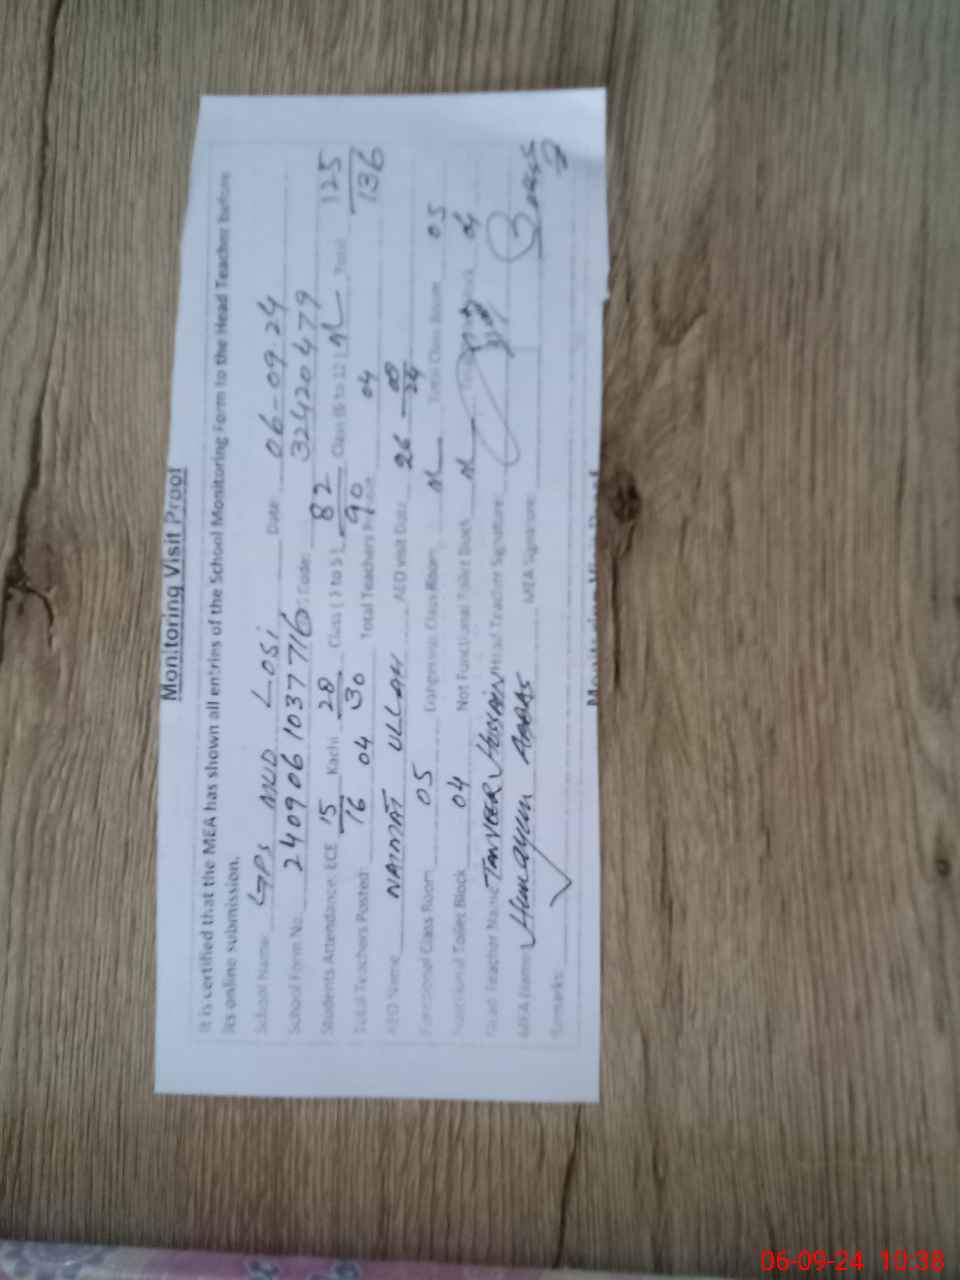 Monitoring Visit Proof
It is certified that the MEA has shown all entries of the School Monitoring Form to the Head Teacher before
its online submission.
School Name: GPS MUD LOSI Date: 06-09-24
School Form No: 2409061037716 Code: 32420479
Students Attendance: ECE 15/16 Kachi 28/30 Class (1 to 5) 82/90 Class (6 to 12) Total 125/136
Total Teachers Posted: 04 Total Teachers 04
AEO Name NAIMAT ULLAH AEO visit Date 26
Functional Class Room 05 Dangerous Class Room Total Class Room 05
Functional Toilet Block 04 Not Functional Toilet Block 04
Head Teacher Name TANVEER HUSSAIN Head Teacher Signature
MEA Name Humayun Abbas MEA Signature
Remarks:
06-09-24 10:38